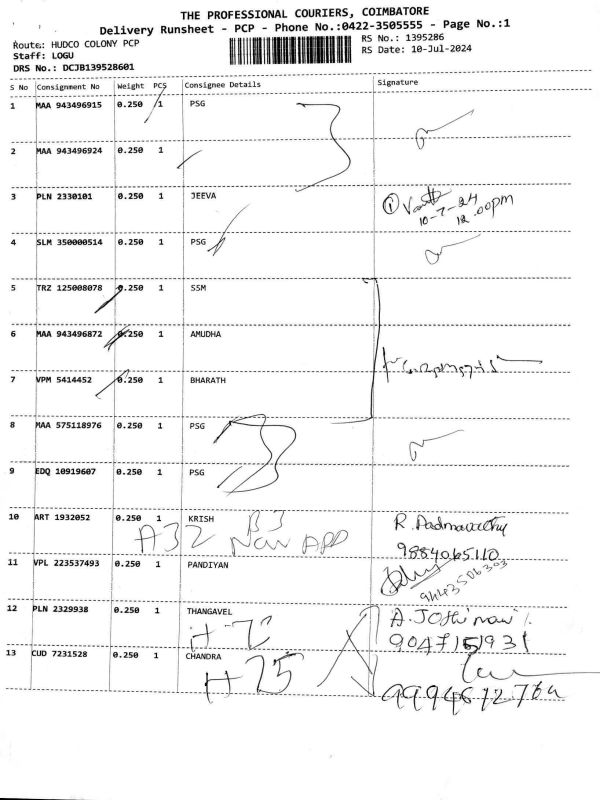 THE PROFESSIONAL COURIERS, COIMBATORE
Delivery Runsheet - PCP - Phone No.:0422-3505555 - Page No.:1
Route: HUDCO COLONY PCP
RS No.: 1395286
Staff: LOGU
RS Date: 10-Jul-2024
DRS No.: DCJB139528601
S No Consignment No Weight PCS Consignee Details Signature
1 MAA 943496915 0.250 1 PSG
2 MAA 943496924 0.250 1
3 PLN 2330101 0.250 1 JEEVA
10-7-24
12.00pm
4 SLM 350000514 0.250 1 PSG
5 TRZ 125008078 0.250 1 SSM
6 MAA 943496872 0.250 1 AMUDHA
7 VPM 5414452 0.250 1 BHARATH
8 MAA 575118976 0.250 1 PSG
9 EDQ 10919607 0.250 1 PSG
10 ART 1932052 0.250 1 KRISH B3 R. Padmavathy
A32
9884065110
11 VPL 223537493 0.250 1 PANDIYAN
9443506303
12 PLN 2329938 0.250 1 THANGAVEL
13 CUD 7231528 0.250 1 CHANDRA
H 25